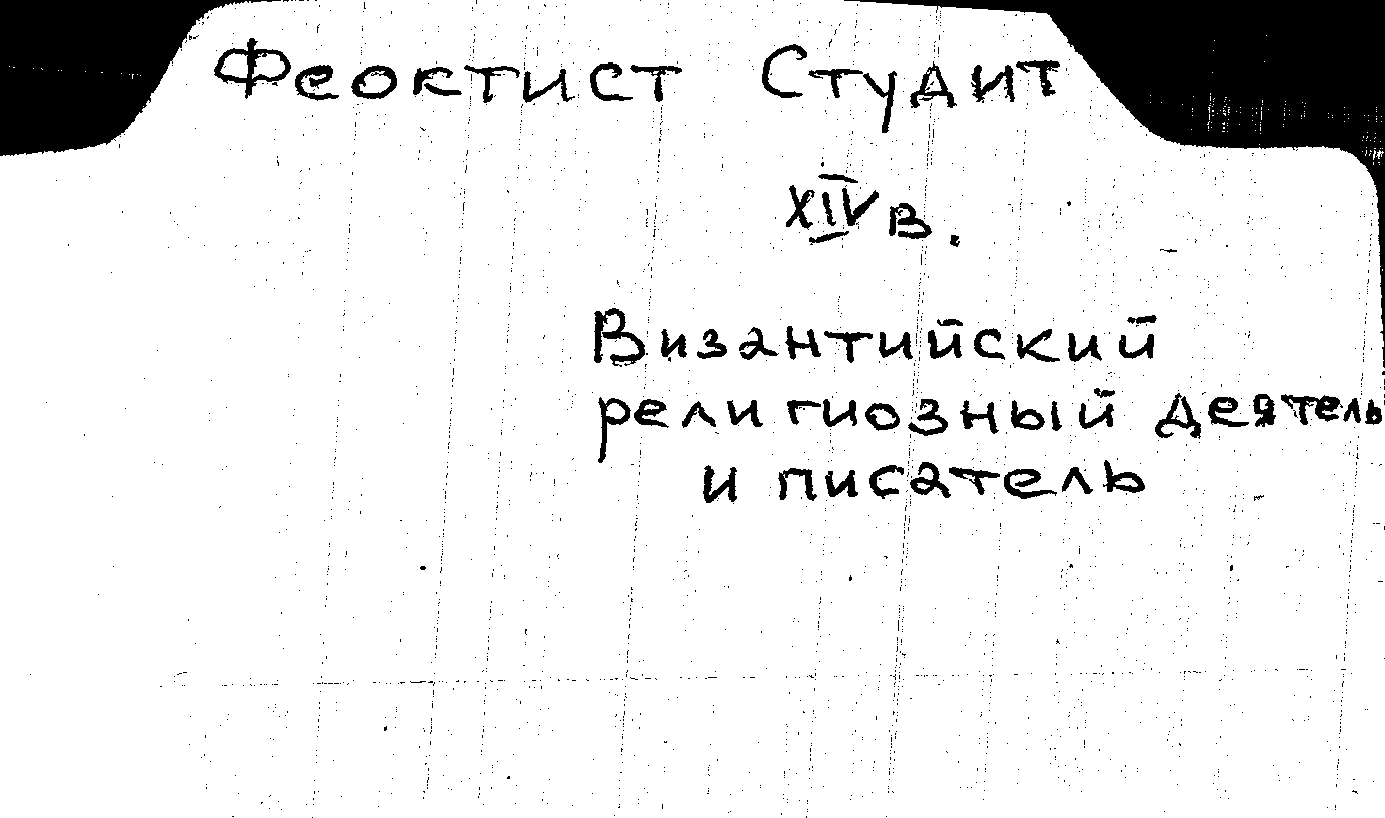 Феоктист Студит
XIV в.
Византийский
религиозный деятель
и писатель